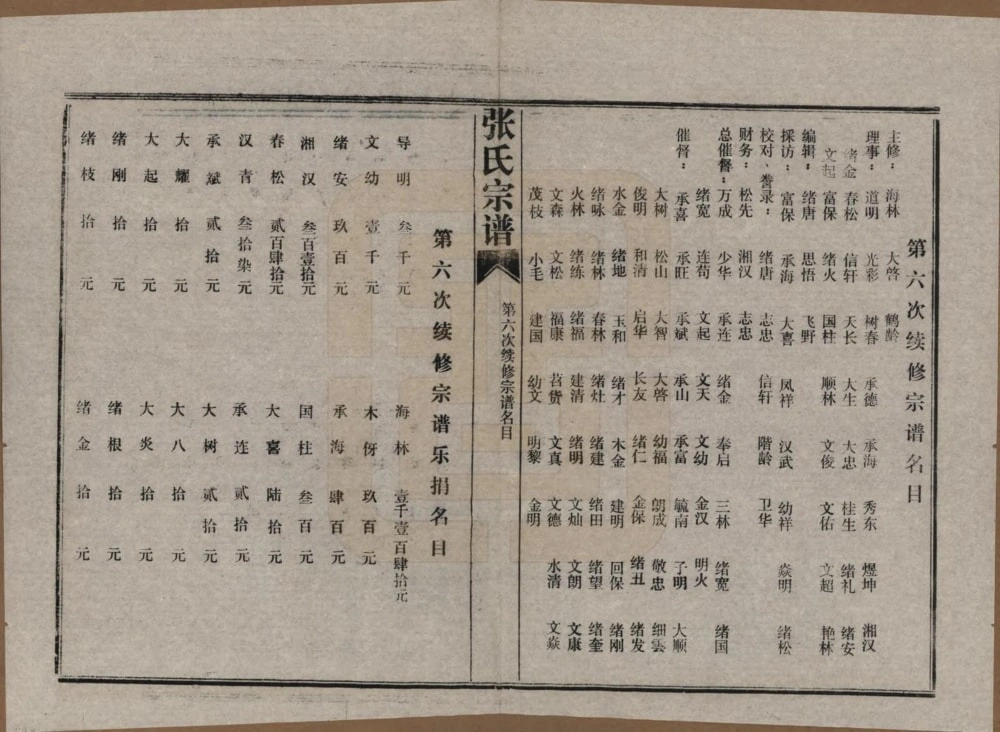 第六次续修宗谱名目
主修：海林 大啓 鶴龄
理事：道明 光彩 树春 承德 承海 秀东 煜坤 湘汉
绪金 春松 信轩 天长 大生 大忠 桂生 绪礼 绪安
文起 富保 绪火 国柱 顺林 文俊 文佑 文超 艳林
编辑：绪唐 思悟 飞野
採访：富保 承海 大喜 凤祥 汉武 幼祥 焱明 绪松
校对、誊录：绪唐 志忠 信轩 階龄 卫华
财务：松先 湘汉 志忠
总催督：万成 少华 承连 绪金 奉启 三林 绪宽 绪国
绪宽 连苟 文起 文天 文幼 金汉 明火
催督：承喜 承旺 承斌 承山 承富 毓南 子明 大顺
大树 松山 大智 大啓 幼福 朗成 敬忠 细雲
俊明 和清 启华 长友 绪仁 金保 绪丑 绪发
水金 绪地 玉和 绪才 木金 建明 回保 绪刚
绪咏 绪林 春林 绪灶 绪建 绪田 绪望 绪奎
火林 绪练 绪福 建清 绪明 文灿 文朗 文康
文森 文松 福康 苕货 文真 文德 水清 文焱
茂枝 小毛 建国 幼文 明黎 金明
张氏宗谱
第六次续修宗谱名目
第六次续修宗谱乐捐名目
导明 叁千元 海林 壹千壹百肆拾元
文幼 壹千元 木伢 玖百元
绪安 玖百元 承海 肆百元
湘汉 叁百壹拾元 国柱 叁百元
春松 贰百肆拾元 大喜 陆拾元
汉青 叁拾柒元 承连 贰拾元
承斌 贰拾元 大树 贰拾元
大耀 拾元 大八 拾元
大起 拾元 大炎 拾元
绪刚 拾元 绪根 拾元
绪枝 拾元 绪金 拾元